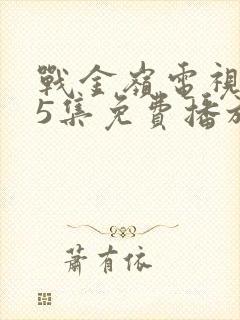 戰金嶺電視
5集免費播放
蕭有依